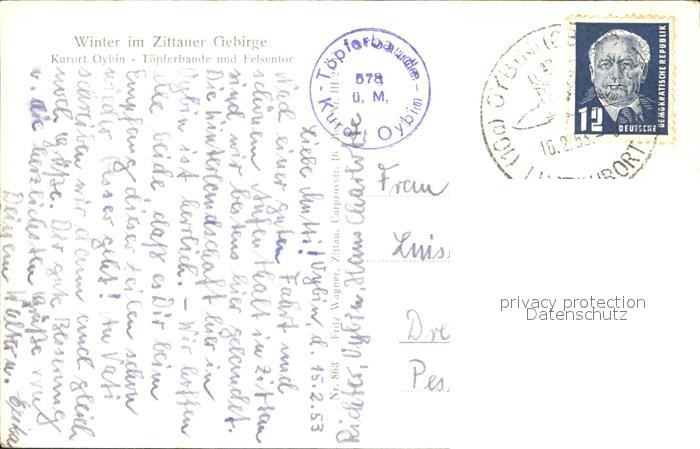 Winter im Zittauer Gebirge
Kurort Oybin - Töpferbaude und Felsentor
Töpferbaude
578
ü. M.
Kurort Oybin
OYBIN
16.2.53
LUFTKURORT
12
DEUTSCHE
DEMOKRATISCHE REPUBLIK
Oybin, d. 15.2.53
Liebe Mutti!
Nach einer guten Fahrt und
schönem Aufenthalt in Zittau
sind wir bestens hier gelandet.
Die Winterlandschaft hier in
Oybin ist herrlich. - Wir hoffen
alle beide daß es Dir beim
Empfang dieser Zeilen schon
wieder besser geht! An Vati
schreiben wir dann auch gleich
noch Grüße. Dir gute Besserung
u. die herzlichsten Grüße von
Deinem Walter u.
Nr. 863 Fritz Wagner, Zittau, Carpzovstr. 16
Frau
Luis
Dre
Pes
privacy protection
Datenschutz